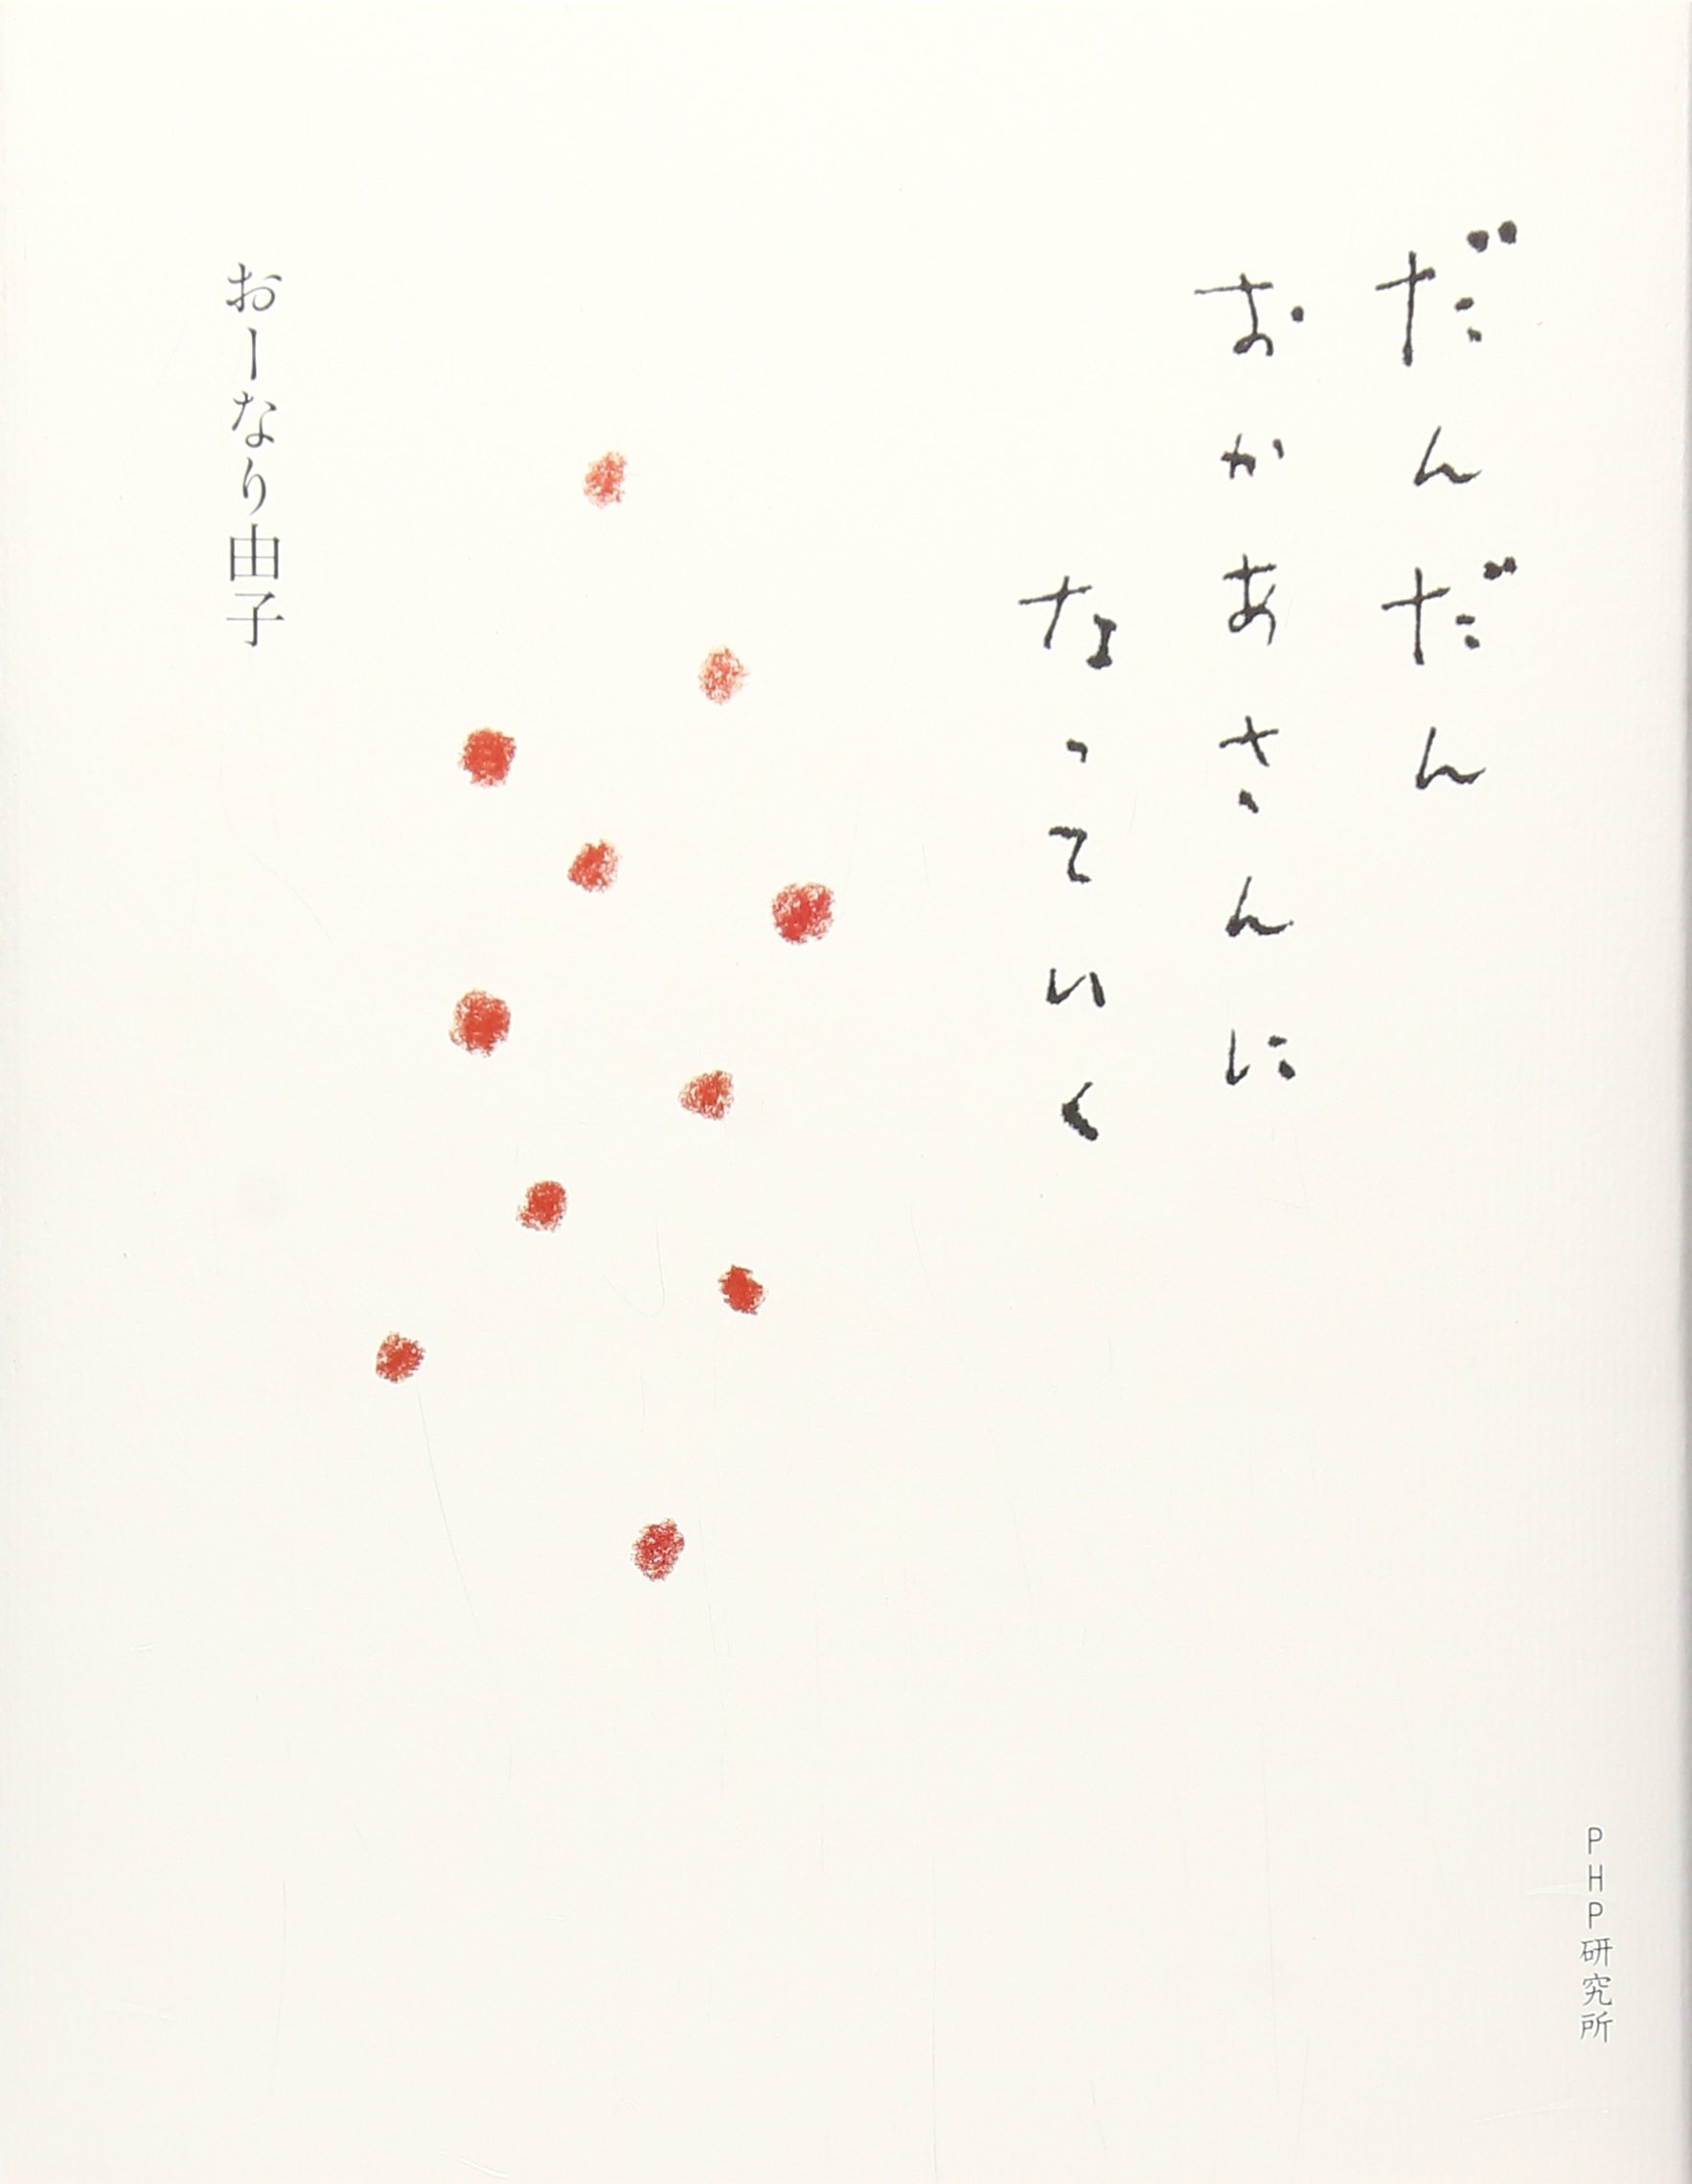 だんだん
おかあさんに
なっていく
おーなり由子
PHP研究所